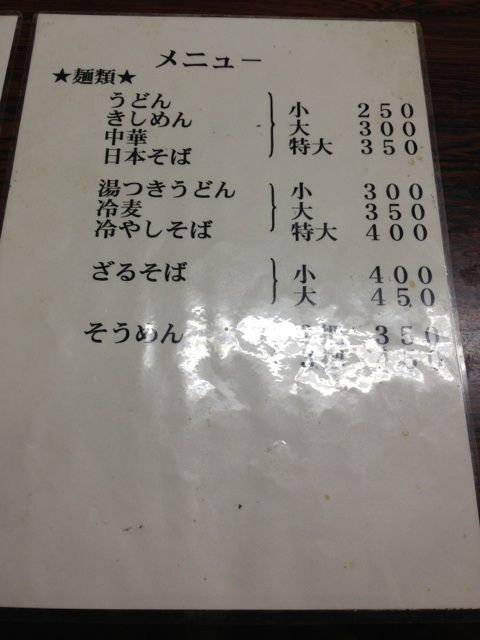 メニュー
★麺類★
うどん
きしめん
中華
日本そば
小 250
大 300
特大 350
湯つきうどん
冷麦
冷やしそば
小 300
大 350
特大 400
ざるそば
小 400
大 450
そうめん
350
450